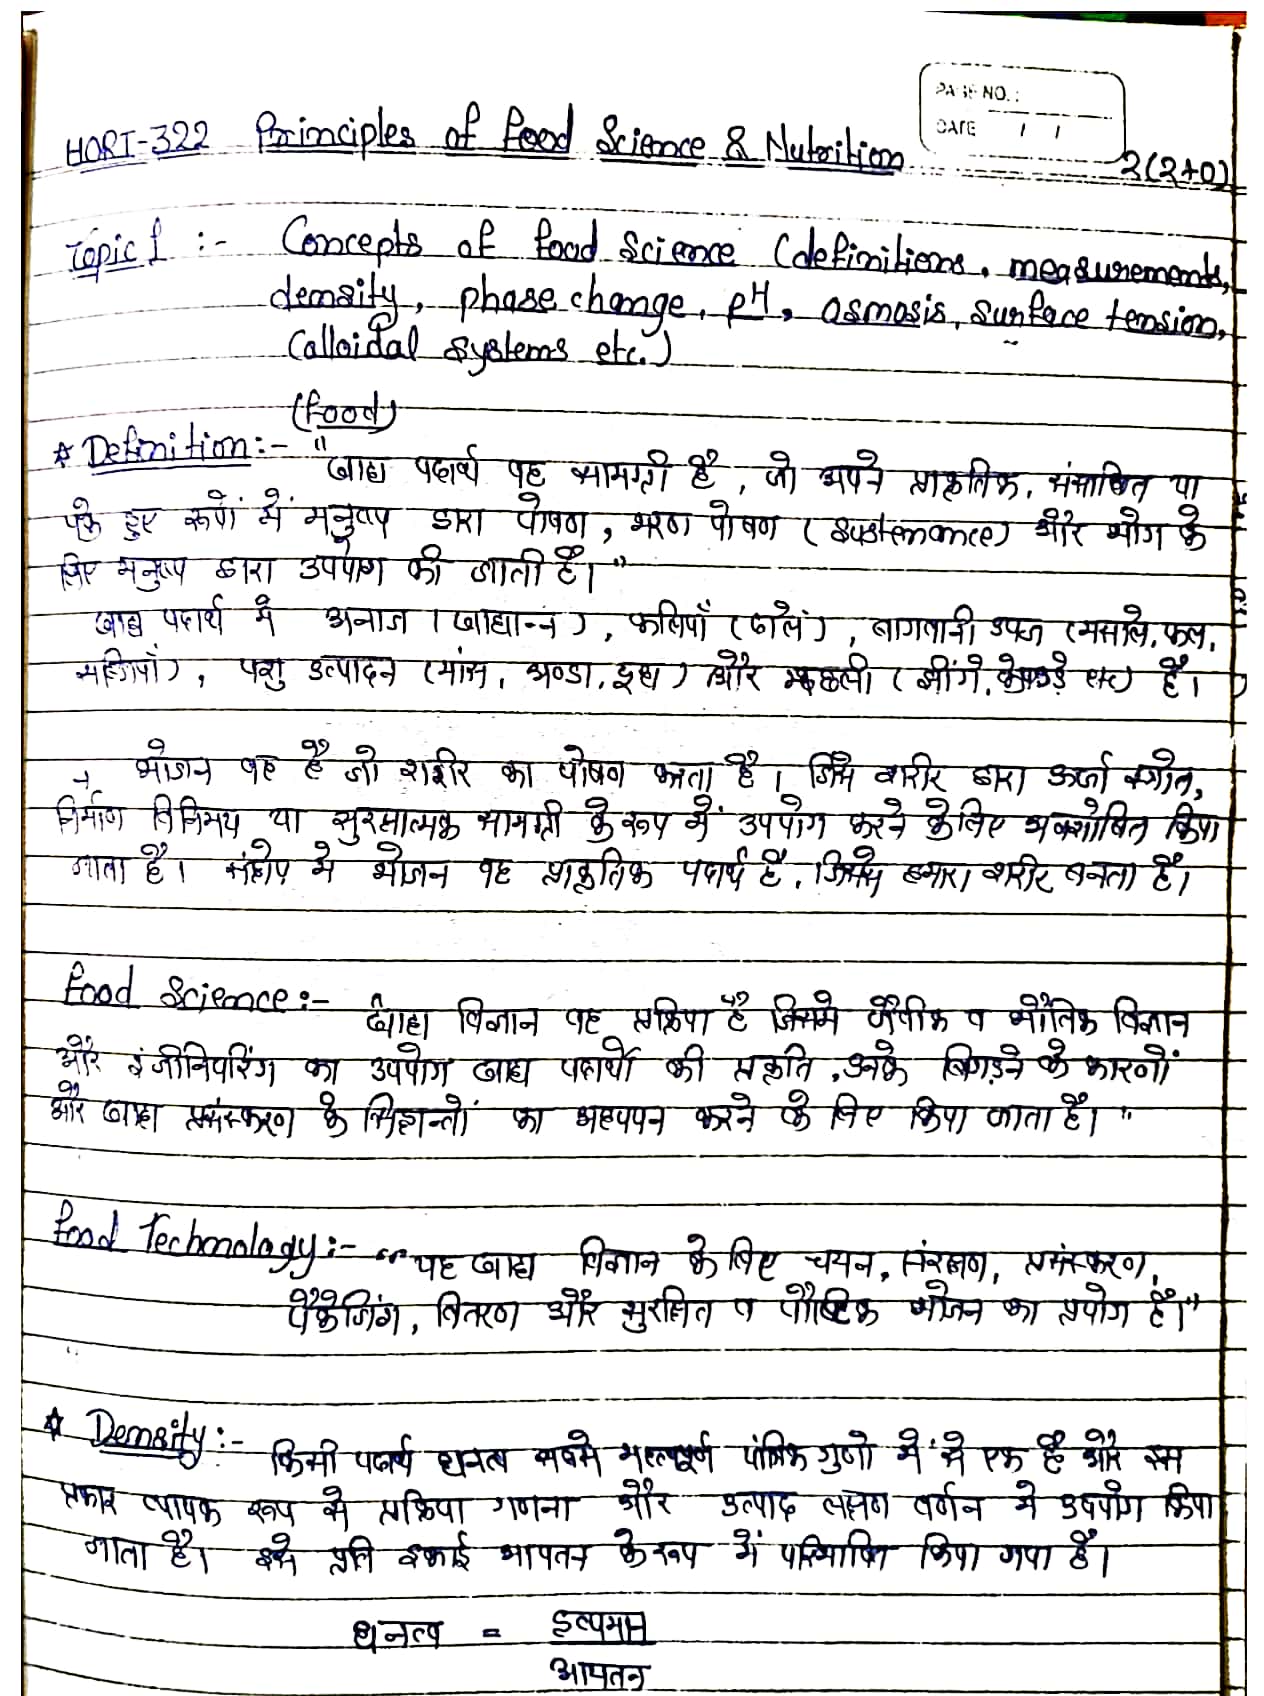 PAGE NO. :
DATE / /
HORT-322 Principles of Food Science & Nutrition 2(2+0)
Topic 1 :- Concepts of food science (definitions, measurements,
density, phase change, pH, osmosis, surface tension,
Colloidal systems etc.)
(food)
* Definition:- "खाद्य पदार्थ वह सामग्री है, जो अपने प्राकृतिक, संसाधित या
पके हुए रूपों में मनुष्य द्वारा पोषण, भरण पोषण (sustenance) और भोग के
लिए मनुष्य द्वारा उपयोग की जाती है।"
खाद्य पदार्थ में अनाज (खाद्यान्न), फलियाँ (दालें), बागवानी उपज (मसाले, फल,
सब्जियाँ), पशु उत्पादन (मांस, अण्डा, दूध) और मछली (झींगे, केकड़े etc) है।
→ भोजन वह है जो शरीर का पोषण करता है। जिसे शरीर द्वारा ऊर्जा स्त्रोत,
निर्माण विनिमय या सुरक्षात्मक सामग्री के रूप में उपयोग करने के लिए अवशोषित किया
जाता है। संक्षेप में भोजन वह प्राकृतिक पदार्थ है, जिससे हमारा शरीर बनता है।
Food Science:- खाद्य विज्ञान वह प्रक्रिया है जिसमे जैविक व भौतिक विज्ञान
और इंजीनियरिंग का उपयोग खाद्य पदार्थों की प्रकृति, उनके बिगड़ने के कारणों
और खाद्य प्रसंस्करण के सिद्धान्तों का अध्ययन करने के लिए किया जाता है।"
Food Technology:- "यह खाद्य विज्ञान के लिए चयन, संरक्षण, प्रसंस्करण,
पैकेजिंग, वितरण और सुरक्षित व पौष्टिक भोजन का प्रयोग है।"
* Density:- किसी पदार्थ घनत्व सबसे महत्वपूर्ण यांत्रिक गुणो में से एक है और इस
प्रकार व्यापक रूप से प्रक्रिया गणना और उत्पाद लक्षण वर्णन मे उपयोग किया
जाता है। इसे प्रति इकाई आयतन के रूप में परिभाषित किया गया है।
घनत्व = द्रव्यमान
आयतन